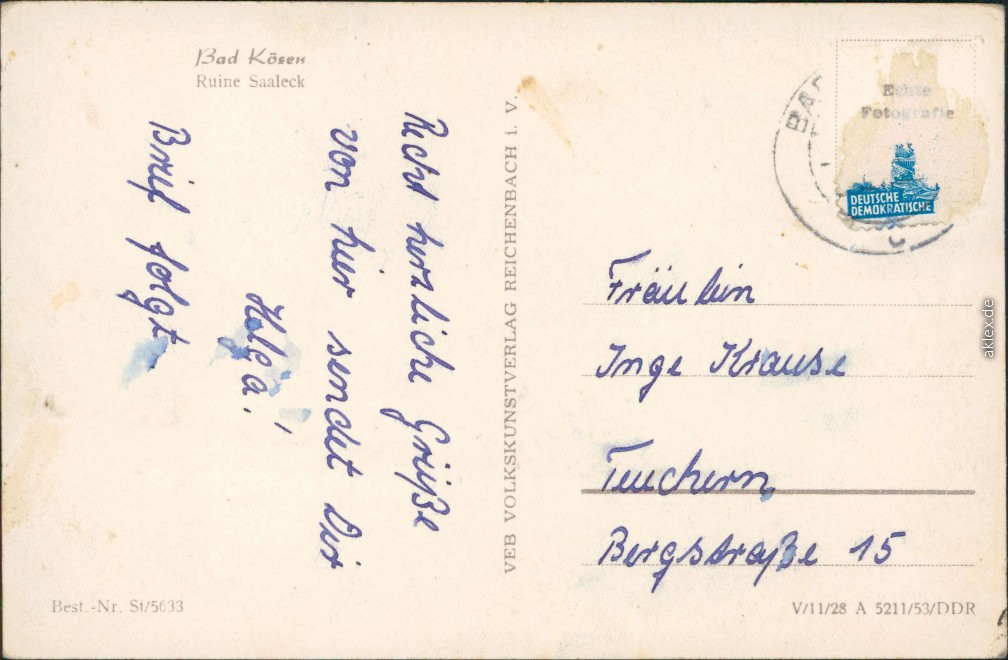 Bad Kösen
Ruine Saaleck
Recht herzliche Grüße
von hier sendet Dir
Helga!
Brief folgt
VEB VOLKSKUNSTVERLAG REICHENBACH i. V.
Echte
Fotografie
BAD
DEUTSCHE
DEMOKRATISCHE
Fräulein
Inge Krause
Teuchern,
Bergstraße 15
Best.-Nr. St/5633
V/11/28 A 5211/53/DDR
aklex.de